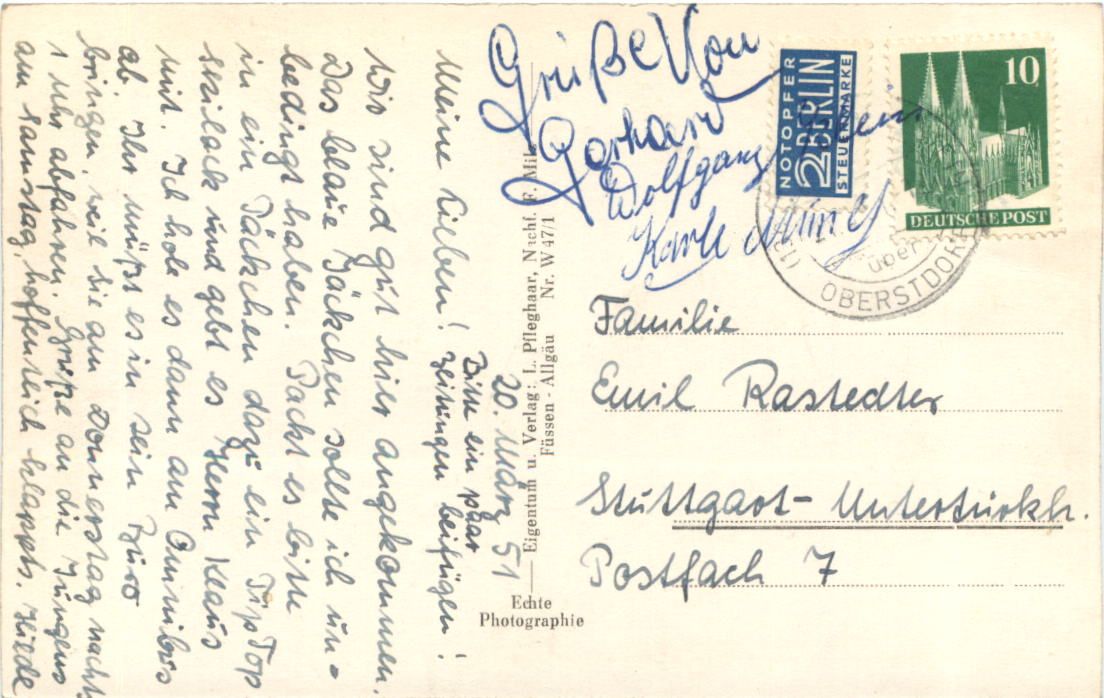 20. März 51
Meine Lieben!
Wir sind gut hier angekommen.
Das blaue Jäckchen sollte ich un-
bedingt haben. Packt es bitte
in ein Päckchen dazu ein TripTop
und gebt es Herrn Klaus
mit. Ich hole es dann am Omnibus
ab. Ihr müßt es in sein Büro
bringen, weil sie am Donnerstag nacht
1 Uhr abfahren. Grüße an die Jungens
am Samstag, hoffentlich klappts. Hilde
Bitte ein paar
Zeitungen beifügen!
Grüße Von
Gerhard
Wolfgang
Karle
Eigentum u. Verlag: L. Pfleghaar, Nachf. F.
Füssen - Allgäu Nr. W 47/1
Echte
Photographie
NOTOPFER
2 BERLIN
STEUERMARKE
10
DEUTSCHE POST
über
OBERSTDORF
Familie
Emil Rastedter
Stuttgart-Untertürkh.
Postfach 7